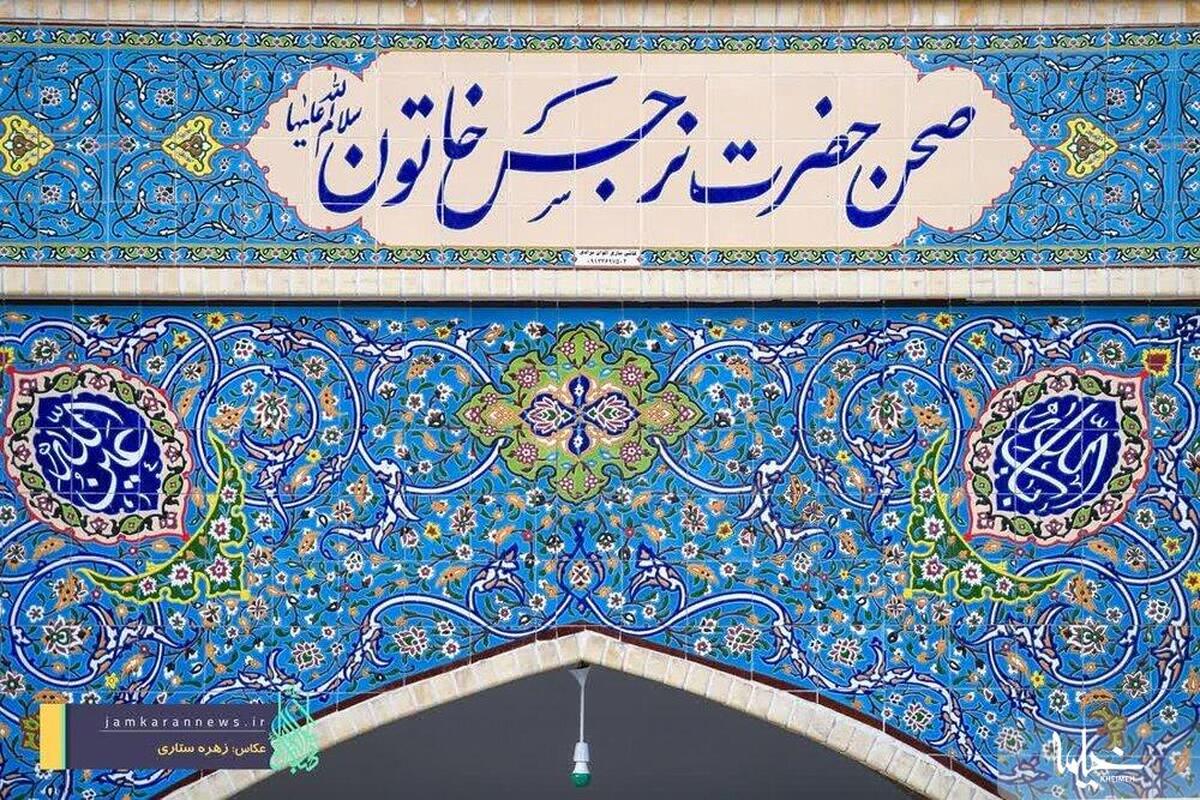 صحن حضرت نرجس خاتون سلام الله علیها
عین الله
jamkarannews.ir
عکاس: زهره ستاری
KHEIMEH